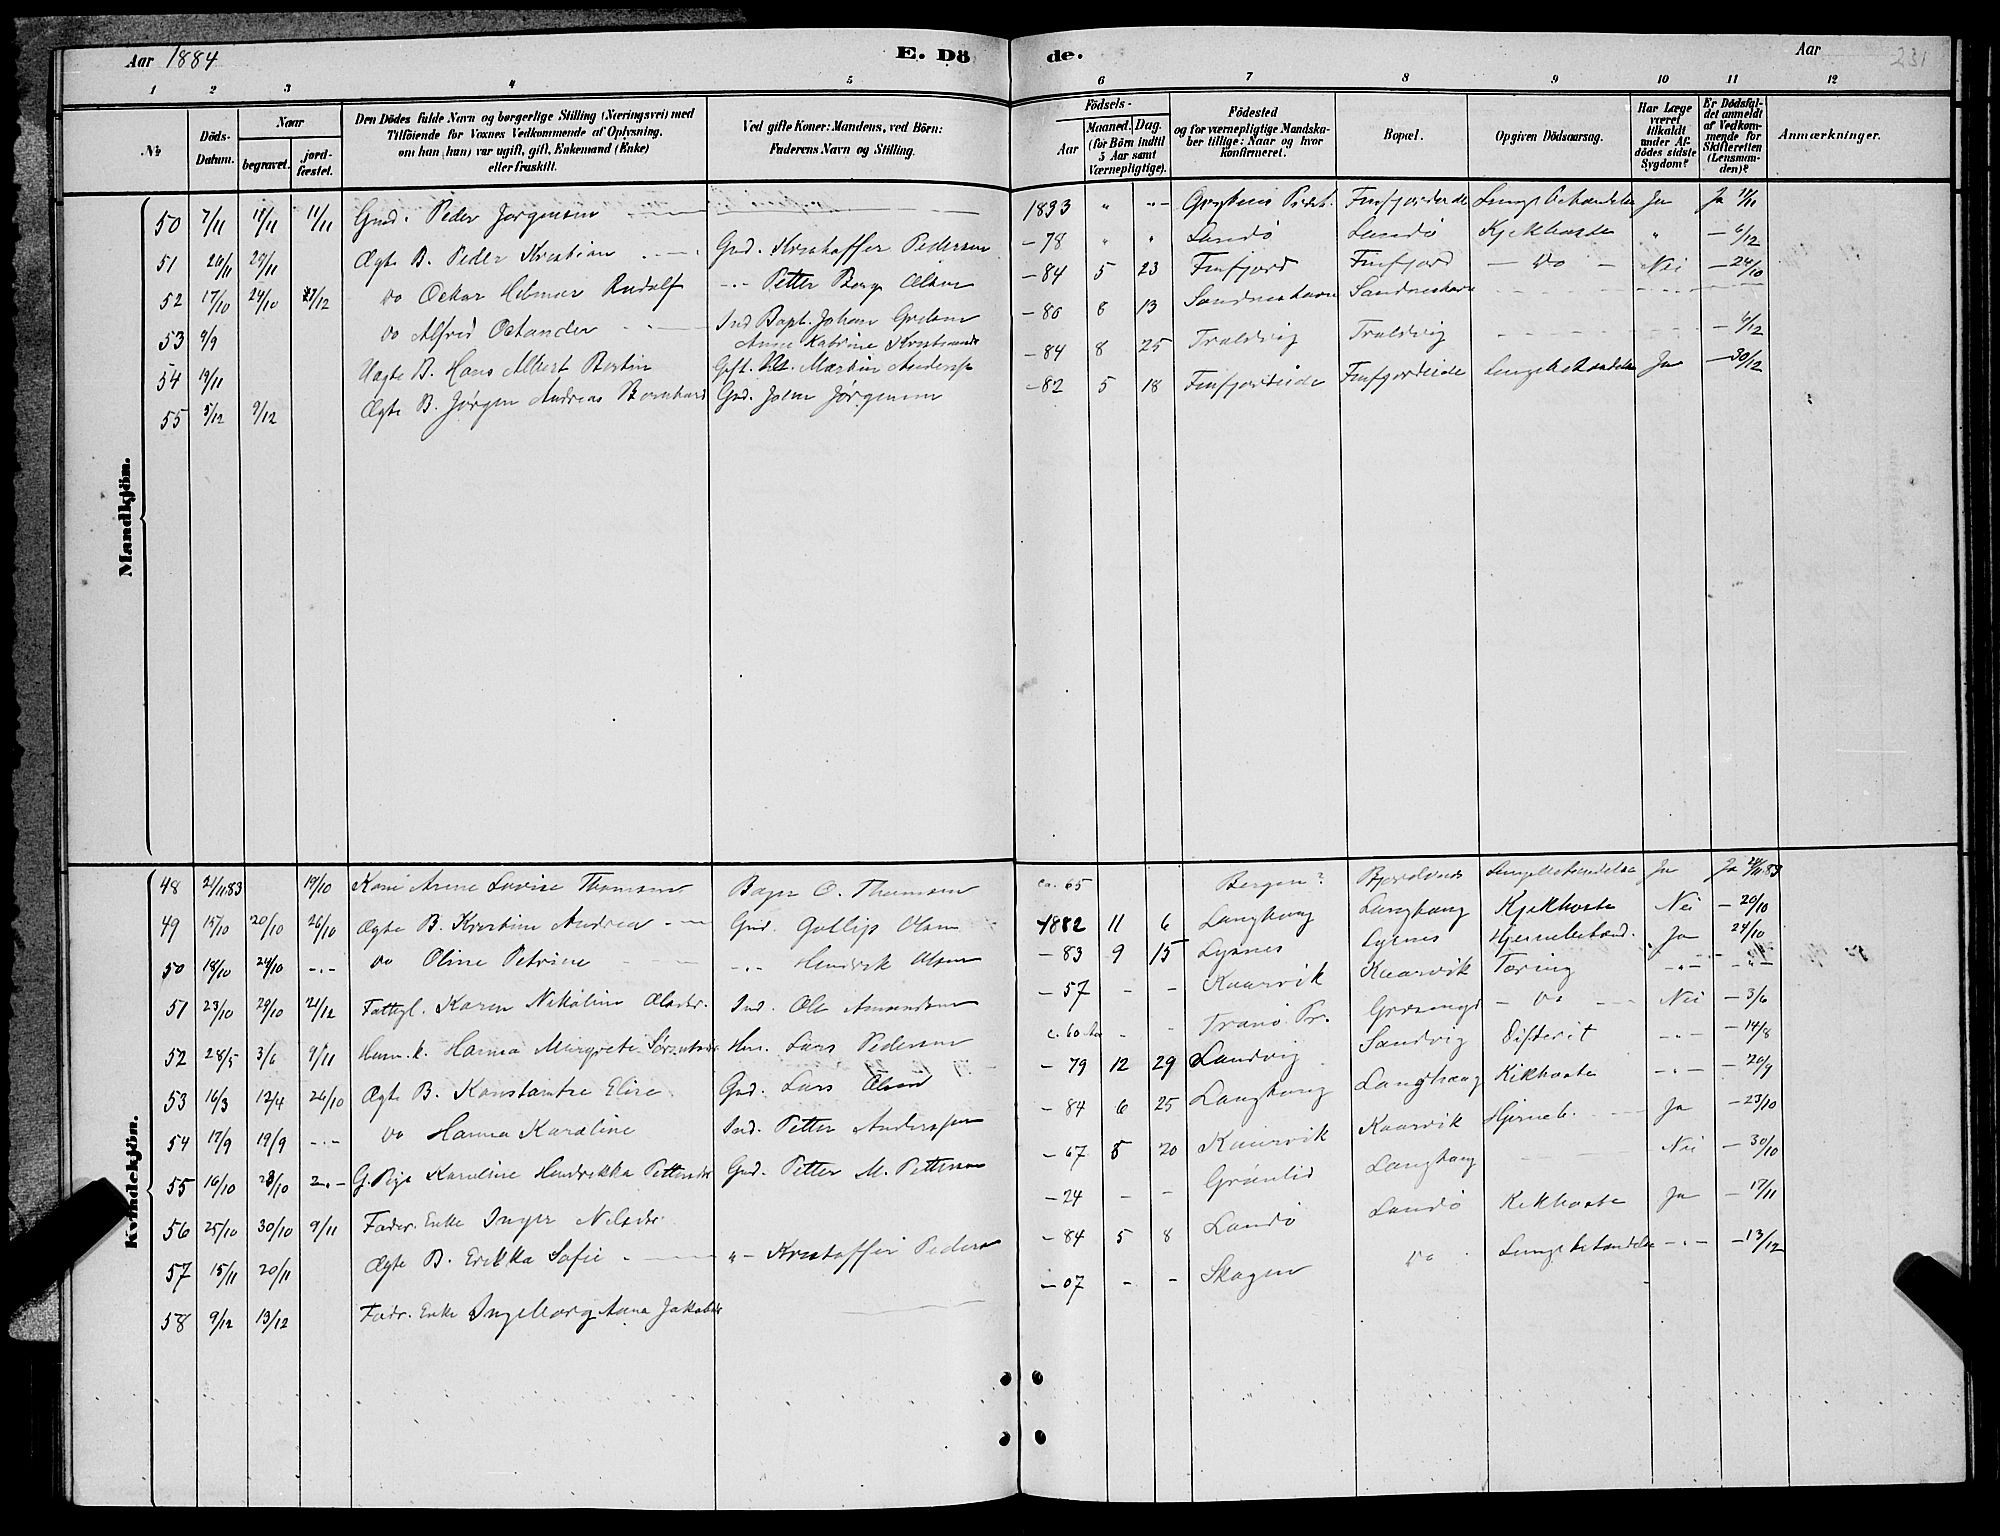 Aar 1884 E. Dö de. Aar 231
1 2 3 4 5 6 7 8 9 10 11 12
№ Döds-Datum. Naar begravet. jord-fæstet. Den Dödes fulde Navn og borgerlige Stilling (Næringsvei) med Tilföiende for Voxnes Vedkommende af Oplysning, om han (hun) var ugift, gift, Enkemand (Enke) eller fraskilt. Ved gifte Koner: Mandens, ved Börn: Faderens Navn og Stilling. Födsels- Aar Maaned. Dag. (for Börn indtil 5 Aar samt Værnepligtige). Födested og for værnepligtige Mandska-ber tillige: Naar og hvor konfirmeret. Bopæl. Opgiven Dödsaarsag. Har Læge været tilkaldt under Af-dödes sidste Sygdom? Er Dödsfal-det anmeldt af Vedkom-mende for Skifteretten (Lensman-den)? Anmærkninger.
Mandkjön.
50 7/11 11/11 Gmd. Peder Jørgensen 1833 " " Finfjordeide Ja Ja
51 26/11 29/11 Ægte B. Peder Kristian Gmd. Kristoffer Pedersen - 78 " " Landö Landö Kjekhoste " - 6/12
52 17/10 24/10 27/12 do Oskar Helmer Rudolf -"- Petter Berg Olsen - 84 5 23 Finfjord Finfjord - do - Nei - 24/10
53 9/9 do Alfred Octander Ind Johan - 80 8 13 Sandneshavn Sandneshavn
Anne Katrine
54 19/11 Uægte B. Hans Albert Bertin Gift. Martin Anders - 84 8 25 Traldvig Traldvig - 6/12
55 5/12 9/12 Ægte B. Jørgen Andreas Bernhard Gmd. John Jørgensen - 82 5 18 Finfjordeide Finfjordeide Lungebetændelse Ja - 30/12
Kvindekjön.
48 2/11 83 19/10 Kari Arene Lovise Thomsen Bager O. Thomsen ca. 65 Bergen? Lungebetændelse Ja Ja
49 15/10 20/10 26/10 Ægte B. Kristine Andrea Gmd. Gollip Olsen 1882 11 6 Langhaug Langhaug Kjekhoste Nei - 20/10
50 18/10 24/10 -"- do Oline Petrine -"- Hendrik Olsen - 83 9 15 Lysnes Lysnes Hjernebetænd. Ja 24/10
51 23/10 29/10 21/12 Fattigl. Karen Nikoline Olsdtr. Ind. Ole Amundsen - 57 - - Kaarvik Kaarvik Tæring -"- -"-
52 28/5 3/6 9/11 Husm.k. Hanna Margrete Hus. Lars Pedersen c. 60 Aar - - Tranö Pr. - do - Nei - 3/6
53 16/3 12/4 26/10 Ægte B. Konstantse Elise Gmd. Lars Olsen - 79 12 29 Sandvig Sandvig Difterit -"- - 14/8
54 17/9 19/9 -"- do Hanna Karoline Ind. Petter Anderssen - 84 6 25 Langhaug Langhaug Kikhoste -"- - 20/9
55 16/10 28/10 -"- G. Pige Karoline Hendrikka Pettersdtr Gmd. Petter M. Pettersen - 67 8 20 Kaarvik Kaarvik Hjerneb. Ja - 23/10
56 25/10 30/10 9/11 Føder. Enke Inger Nilsdtr. - 24 - - Grönlid Langhaug Nei - 30/10
57 15/11 20/11 Ægte B. Erikka Sofie "- Kristoffer Pedersen - 84 5 8 Landö Landö Kikhoste Ja - 17/11
58 9/12 13/12 Fødr. Enke Ingeborg Anna Jakobsdtr - 07 - - Skogen do Lungebetændelse -"- - 13/12